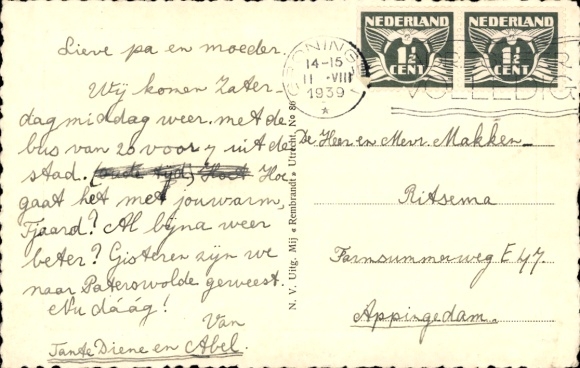 Lieve pa en moeder.
Wij komen Zater-
dagmiddag weer met de
bus van 20 voor 7 uit de
stad. (oude tijd) Hoet Hoe
gaat het met jouw arm,
Tjaard? Al bijna weer
beter? Gisteren zijn we
naar Paterswolde geweest.
Nu dáág!
Van
Tante Diene en Abel.
N. V. Uitg. Mij « Rembrandt » Utrecht. No 86
NEDERLAND
1½
CENT
NEDERLAND
1½
CENT
GRONINGEN
14-15
11 -VIII
1939
VOLLEDIG
De Heer en Mevr. Makken-
Ritsema
Farmsummerweg E 47.
Appingedam.